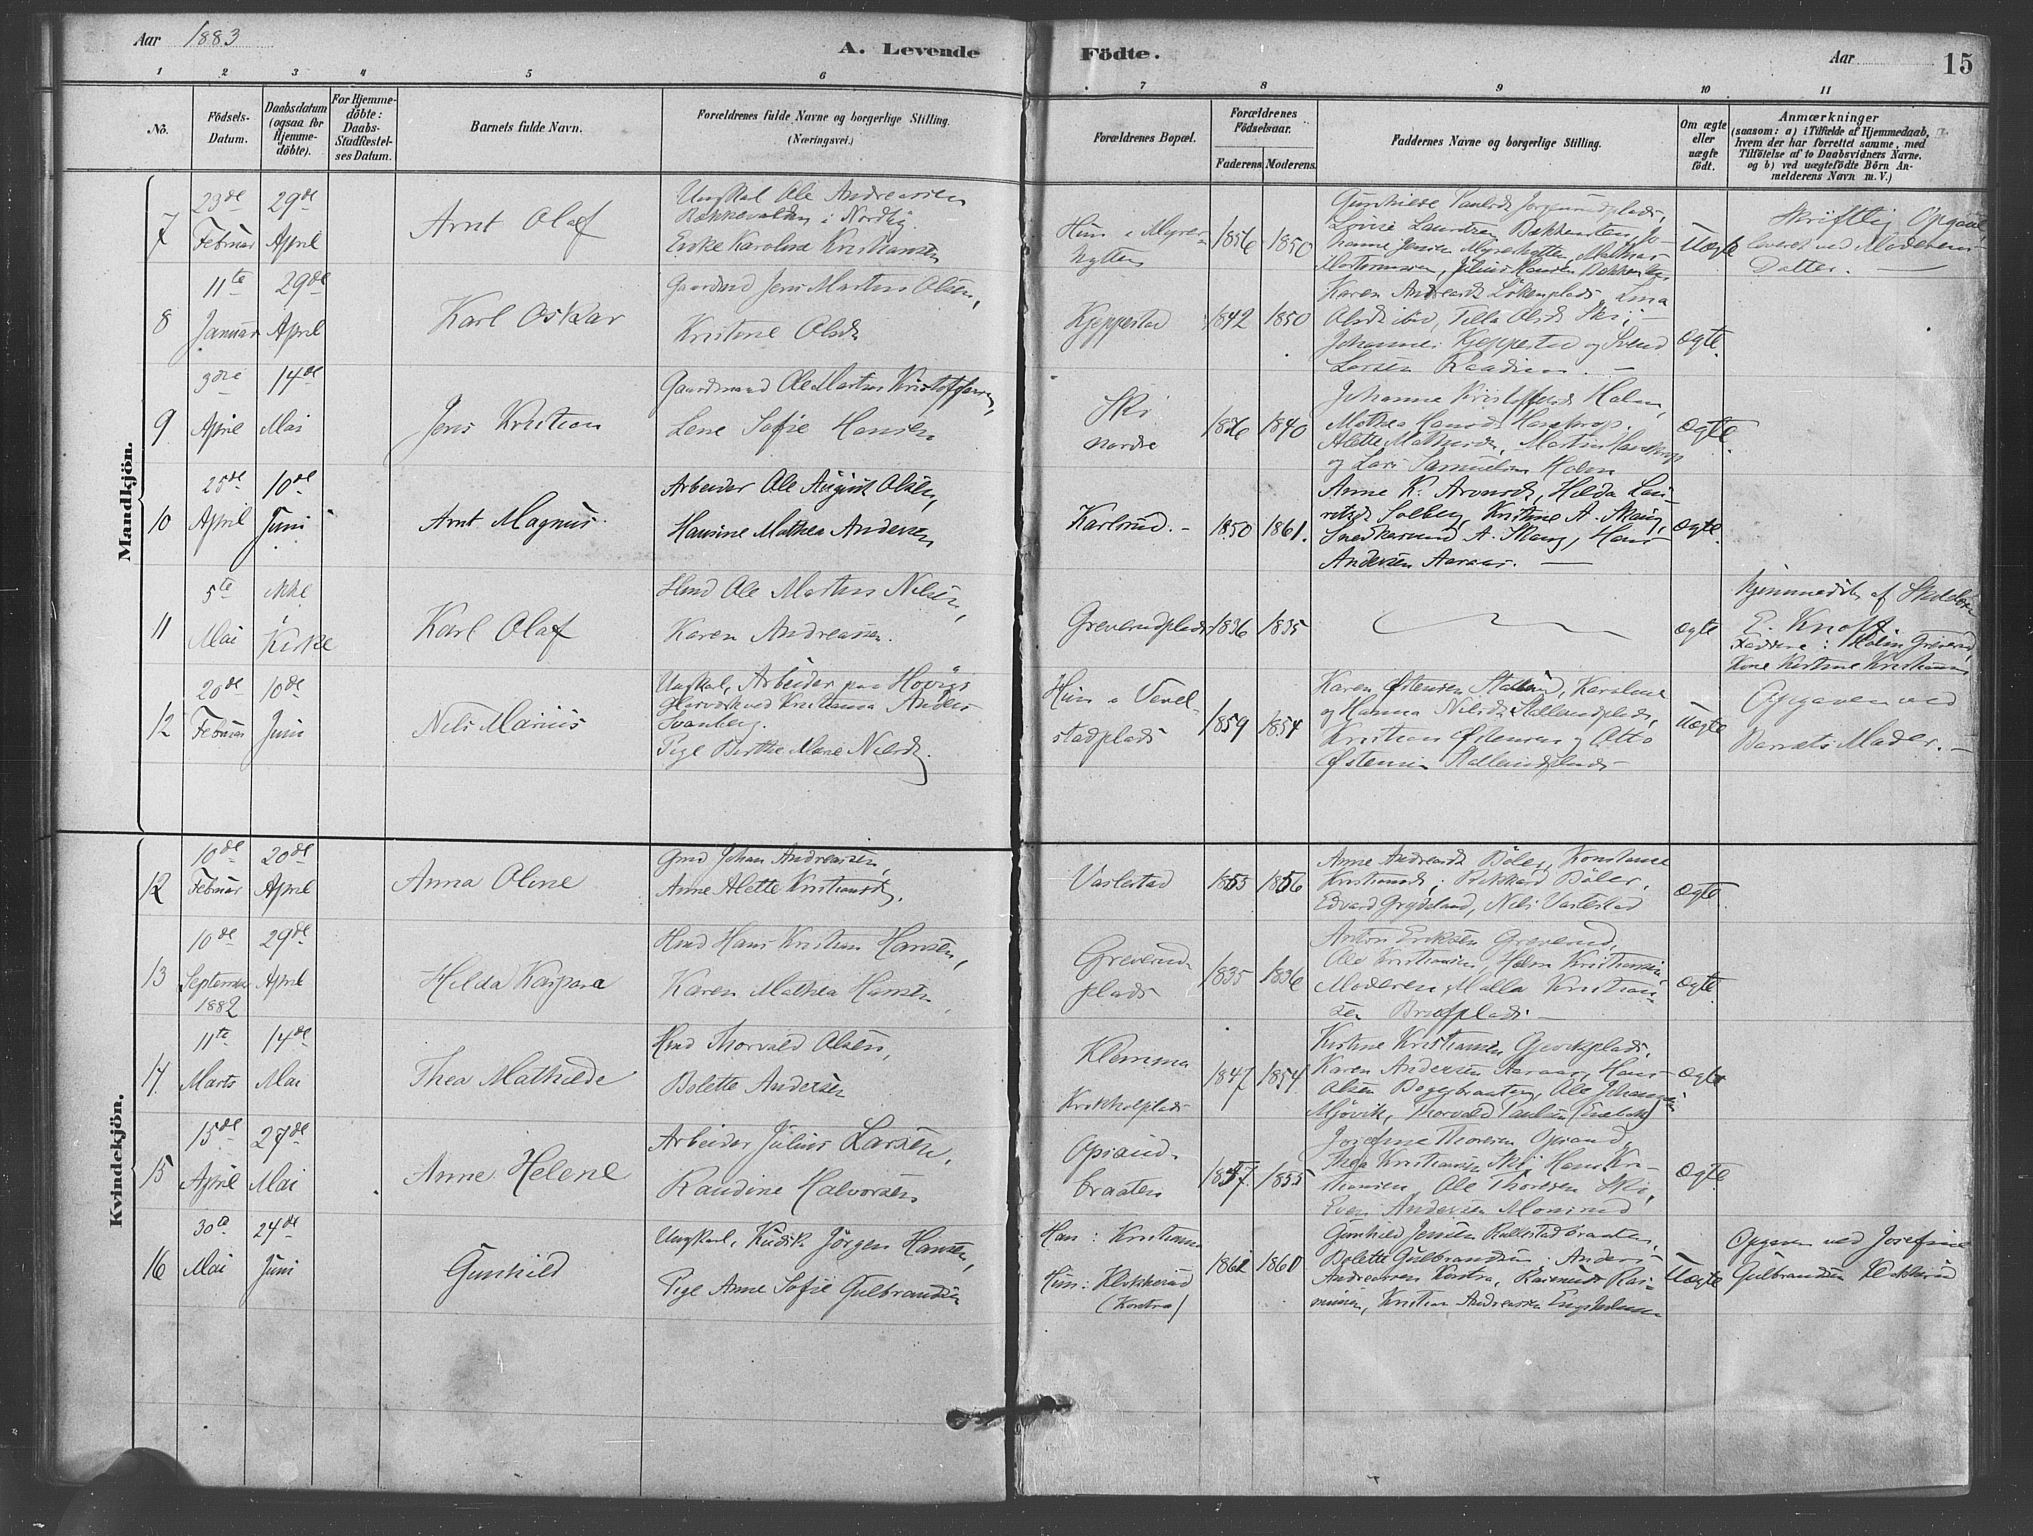 Aar 1883
A. Levende
Födte.
Aar
15
1 2 3 4 5 6 7 8 9 10 11
No.
Födsels-
Datum.
Daabsdatum
(ogsaa for
Hjemme-
döbte).
For Hjemme-
döbte:
Daabs-
Stadfæstel-
ses Datum.
Barnets fulde Navn.
Forældrenes fulde Navne og borgerlige Stilling.
(Næringsvei.)
Forældrenes Bopæl.
Forældrenes
Födselsaar.
Faderens.
Moderens.
Faddernes Navne og borgerlige Stilling.
Om ægte
eller
uægte
födt.
Anmærkninger
(saasom: a) i Tilfælde af Hjemmedaab,
hvem der har forrettet samme, med
Tilföielse af to Daabsvidners Navne.
og b) ved uægtefödte Börn An-
melderens Navn m. V.)
Mandkjön.
7
23de
Februar
29de
April
Arnt Olaf
Ungkal Ole Andreassen
Bakkevolden i Nordby.
Enke Karoline Kristiansen
Hun: Myrer-
hytten
1856
1850
Gunhilde
Lovise Lauritzen Bakkensten, Jo-
hanne Jensen Myrerhytten, Mathias
Mortensen, Julius Hansen
Uægte
Skriftlig Opgave
leveret ved Moderens
Datter. —
8
11te
Januar
29de
April
Karl Oskar
Gaardmd Jens Martin Olsen,
Kristine Olsdr
Kjeppestad
1842
1850
Karen Andreasdr Lökenplads, Lina
Olsdr ibid, Tilla Olsdr Ski,
Johannes Kjeppestad og Svend
Larsen
Ægte.
9
3die
April
14de
Mai
Jens Kristian
Gaardmand Ole Martin Kristoffersen,
Lene Sofie Hansen
Ski
nordre
1836
1840
Johanne Kristoffersdr Holm,
Mathea Hansdr
Alette Mathisdr, Martin
og Lars Samuelsen Holm
Ægte.
10
25de
April
10de
Juni
Arnt Magnus.
Arbeider Ole August Olsen,
Hansine Mathea Andersen
Karlsrud. -
1850
1861.
Anne K. Arnesdr, Hilda Lau-
ritsdr Solberg, Kristine A. Skaug,
Snedkersvend A. Skaug, Hans
Andersen Aaraas. —
Ægte.
11
5te
Mai
ikke
i
Kirke
Karl Olaf
Hmd Ole Martin Nilsen,
Karen Andreassen.
Greverudplads
1836
1835
Ægte
hjemmedöbt af
E. Knoff
Faddere: Holm Greverud,
Kone Kristine Kristiansen
12
20de
Februar
10de
Juni
Nils Marius
Ungkal, Arbeider paa Hövigs
Glasværk ved Kristiania Anders
Svanberg.
Pige Berthe Marie Nilsdr.
Hun: Vevel-
stadplads
1859
1854
Karen Östensen Stallerud, Karoline
og Hanna Nilsdr Stallerudplads,
Kristian Östensen og Otto
Östensen Stallerudplads
Uægte
Opgaven ved
Barnets Moder. —
Kvindekjön.
12
10de
Februar
20de
April
Anna Oline
Gmd Johan Andreassen,
Anne Alette Kristiansdr.
Vaslestad
1855
1856
Anne Andreasdr Böler, Konstance
Kristiansdr, Rikkard Böler,
Edvard Grydeland, Nils Vaslestad
Ægte.
13
10de
September
1882
29de
April
Hilda Kaspara
Hmd Hans Kristian Hansen,
Karen Mathea Hansen
Greverud-
plads
1835
1836
Anton Eriksen Greverud,
Ole Kristiansen, Holm Kristiansen,
Moderen, Malla Kristian-
sen
Ægte.
14
11te
Marts
14de
Mai
Thea Mathilde
Hmd Thorvald Olsen,
Bolette Andersen
Klemma
Krokholplads
1847
1854
Kristine Kristiansen
Karen Andersen Aaraas, Hans
Olsen Bøgsbraaten, Ole Johannesen
Mjövik, Thorvald Paulsen
Ægte
15
15de
April
27de
Mai
Anne Helene
Arbeider Julius Larsen,
Randine Halvorsen
Opsand-
braaten
1857.
1855
Josefine Thoresen Opsand,
Thea Kristiansen Ski, Hans Kri-
stiansen, Ole Thoresen Ski,
Even Andersen Monsrud
Ægte.
16
30te
Mai
24de
Juni
Gunhild
Ungkarl, Kudsk Jörgen Hansen,
Pige Anne Sofie Gulbrandsen
Han: Kristiania
Hun: Klokkerud
(Kontra)
1861
1860
Gunhild Jensen
Bolette Gulbrandsen, Anders
Andreassen Kontra, Rasmus Ras-
mussen, Kristian Andreassen Engsholmen
Uægte
Opgaven ved Josefine
Gulbrandsen Klokkerud